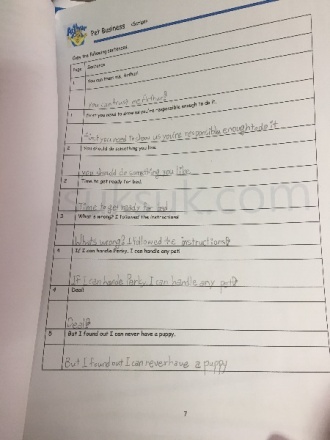 Arthur
Pet Business <Script>
Copy the following sentences.
Page Sentence
1 You can trust me, Arthur!
you can trust me, Arthur!
1 First you need to show us you're responsible enough to do it.
First you need to show us you're responsible enough to do it
2 You should do something you like.
you should do something you like
2 Time to get ready for bed.
Time to get ready for bed
3 What's wrong? I followed the instructions!
What's wrong? I followed the instructions!
4 If I can handle Perky, I can handle any pet!
If I can hande Perky, I can handle any pet!
4 Deal!
Deal!
5 But I found out I can never have a puppy.
But I found out I can never have a puppy
7